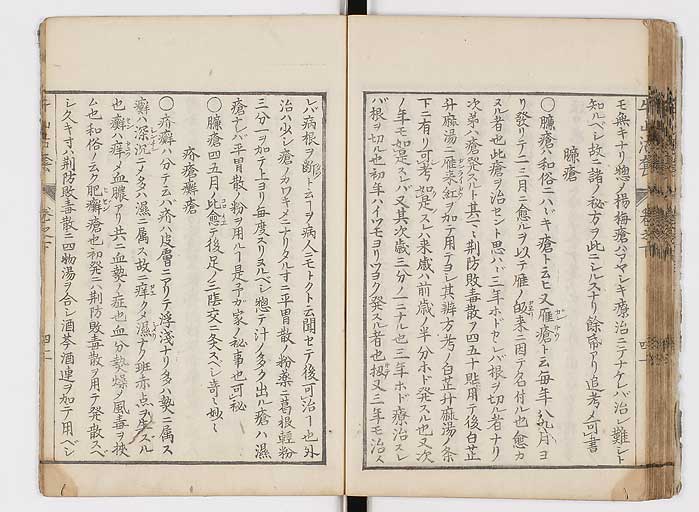 モ無キナリ惣ノ揚梅瘡ハアヤシキ療治ニテナケレバ治シ難シト
知ルベシ故ニ諸ノ秘方ヲ此ニシルスナリ餘帋アリ追考メ可書
臁瘡
〇臁瘡ハ和俗ニハヾキ瘡ト云ヒ又雁瘡ト云毎年八九月ヨ
リ發リテ二三月ニ愈ルヲ以テ雁ノ啼来ニ因テ名付ル也愈カ
ヌル者也此瘡ヲ治セント思ハヾ三年ホドセシバ根ヲ切ル者ナリ
次第ハ瘡発スルト其ニ荊防敗毒散ヲ四五十貼用テ後白芷
升麻湯ニ雁来紅ヲ加テ用テヨシ其辨方考ノ白芷升麻湯ノ条
下ニ有リ可考如是スレハ来歳ハ前歳ノ半分ホド発スル也又次
ノ年モ如是スレバ又其次歳三分ノ一ニナル也三年ホド療治スレ
バ根ヲ切ル也初年ハイツモヨリツヨク発スル者也扨又三年モ治ス
レバ病根ヲ断ト云ーヲ病人ニモトクト云聞セテ後可治ー也外
治ハ少シ瘡ノカワキメニナリタル寸ニ平胃散ノ粉薬ニ葛根軽粉
三分一ヲ加テ上ヨリ毎度スリヌルベシ惣テ汁ノ多ク出ル瘡ハ濕
瘡ナレバ平胃散ノ粉ヲ用ルー是予カ家ノ秘事也可秘
〇臁瘡四五月ノ比愈テ後足ノ三陰交ニ灸スベシ奇〻妙〻
疥瘡癬瘡
〇疥癬ハ分テ云バ疥ハ皮膚ニアリテ浮浅ナリ多ハ熱ニ属ス
癬ハ深沉ニメ多ハ濕ニ属ス故ニ痒クメ濕ナク班赤点ヲ生スル
也癬ハ痒メ血膿アリ共ニ血熱ノ症也血分熱燥メ風毒ヲ挟
ム也和俗ノ云ク肥癬瘡也初発ニハ荊防敗毒散ヲ用テ発散スベ
シ久キ寸ハ荊防敗毒散ニ四物湯ヲ合シ酒芩酒連ヲ加テ用ベシ